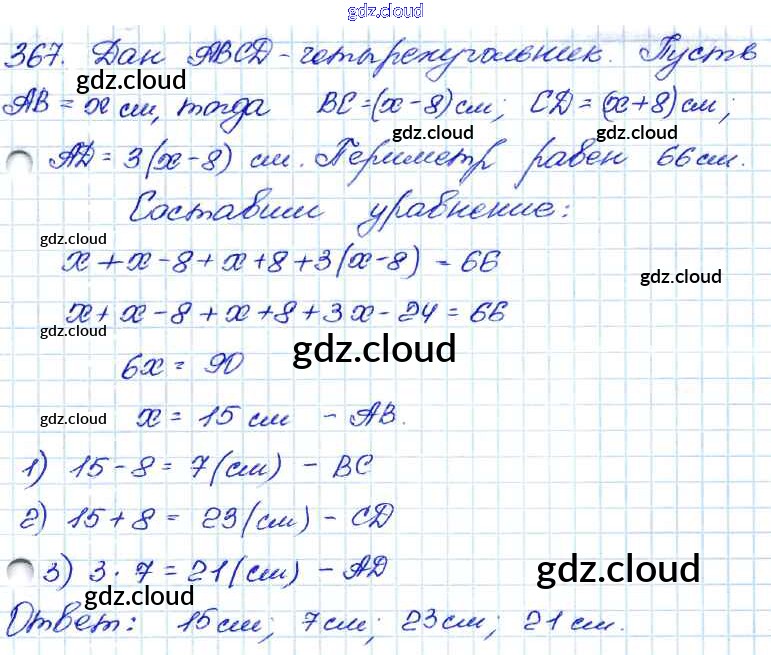 gdz.cloud
367. Дан ABCD - четырехугольник. Пусть
gdz.cloud
AB = x см, тогда BC = (x - 8) см; CD = (x + 8) см;
gdz.cloud gdz.cloud
AD = 3(x - 8) см. Периметр равен 66 см.
gdz.cloud
Составим уравнение:
gdz.cloud
x + x - 8 + x + 8 + 3(x - 8) = 66
gdz.cloud
x + x - 8 + x + 8 + 3x - 24 = 66
gdz.cloud
6x = 90
gdz.cloud
x = 15 см - AB.
gdz.cloud
1) 15 - 8 = 7 (см) - BC
2) 15 + 8 = 23 (см) - CD
3) 3 · 7 = 21 (см) - AD
gdz.cloud
gdz.cloud
Ответ: 15 см; 7 см; 23 см; 21 см.